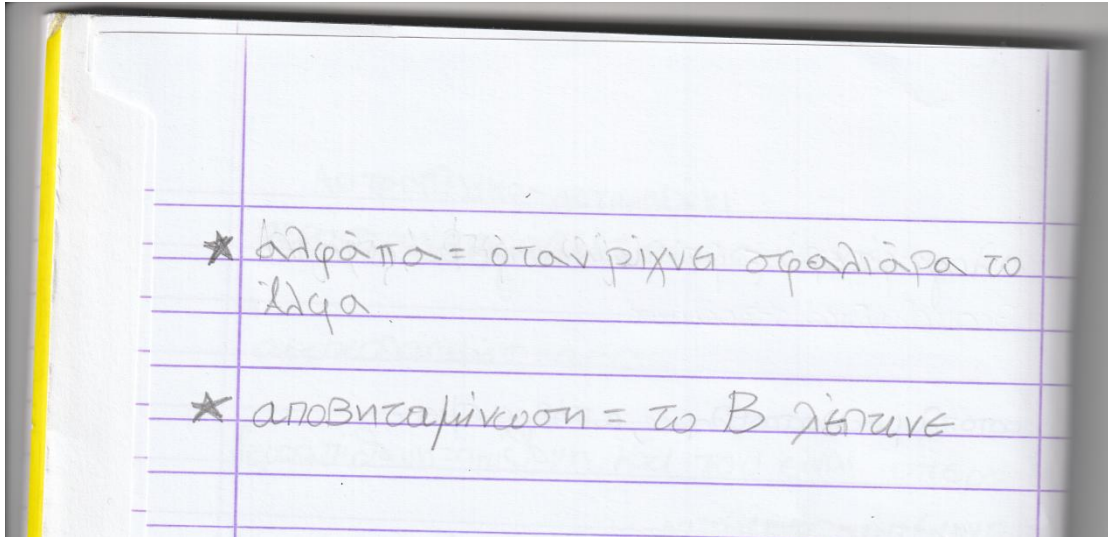 ★ αλφάπα = όταν ρίχνει σφαλιάρα το
Άλφα
★ αποβηταμίνωση = το Β λέπτινε